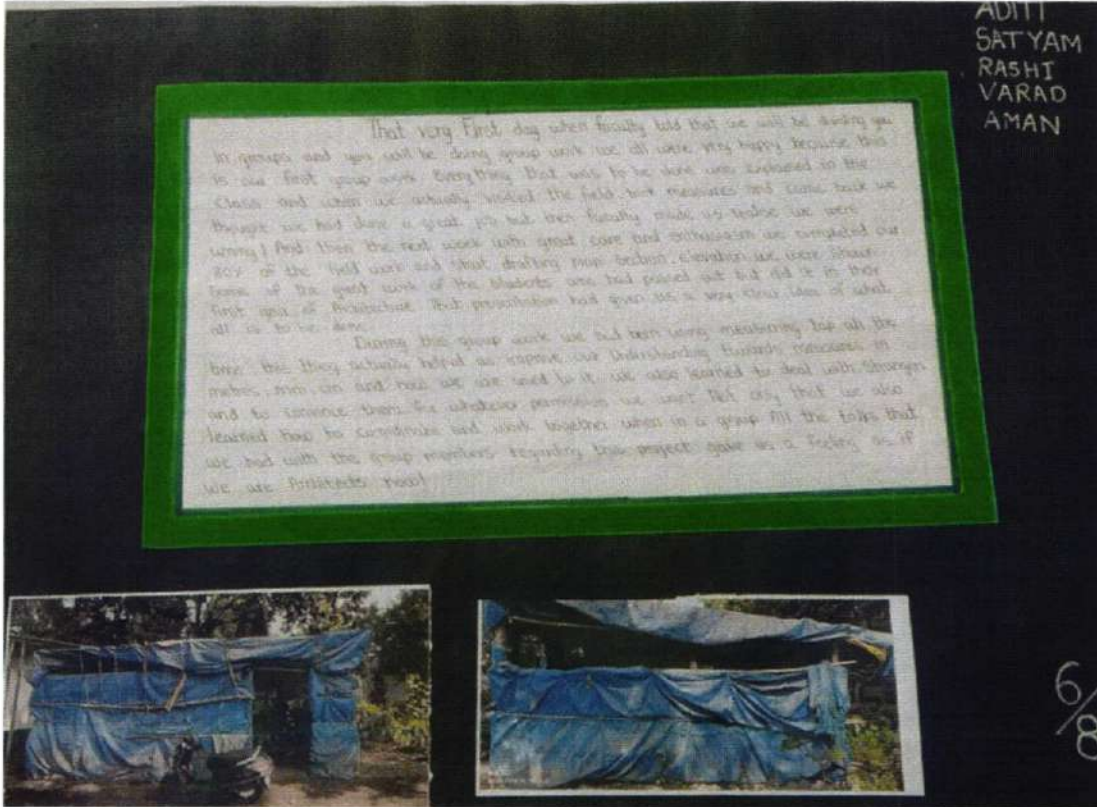 ADITI
SATYAM
RASHI
VARAD
AMAN
That very First day when faculty told that we will be dividing you
in groups and you will be doing group work we all were very happy because this
is our first group work. Everything that was to be done was explained in the
class and when we actually visited the field, took measures and came back we
thought we had done a great job but then faculty made us realise we were
wrong! And then the next work with great care and enthusiasm we completed our
80% of the field work and start drafting map section, elevation. we were shown
some of the great work of the students who had passed out but did it in their
first year of Architecture. That presentation had given us a very clear idea of what
all is to be done
During this group work we had been using measuring tap all the
time, this thing actually helped us improve our understanding towards measures in
metres, mm, cm and now we are used to it. we also learned to deal with strangers
and to convince them for whatever permission we want. Not only that we also
learned how to coordinate and work together when in a group. All the talks that
we had with the group members regarding this project gave us a feeling as if
we are Architects now!
6/8